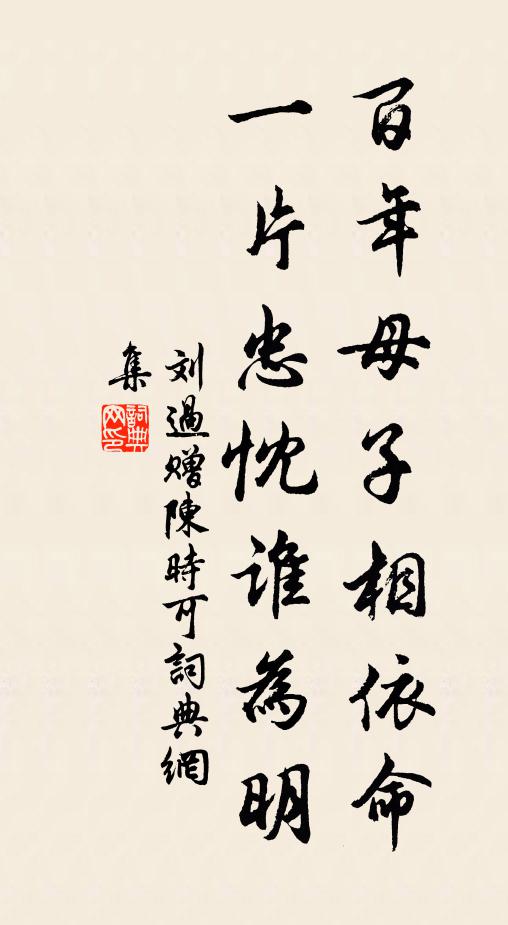 百年母子相依命
一片忠忱谁為明
刘過赠陳時可詞典網
集
詞典
网印